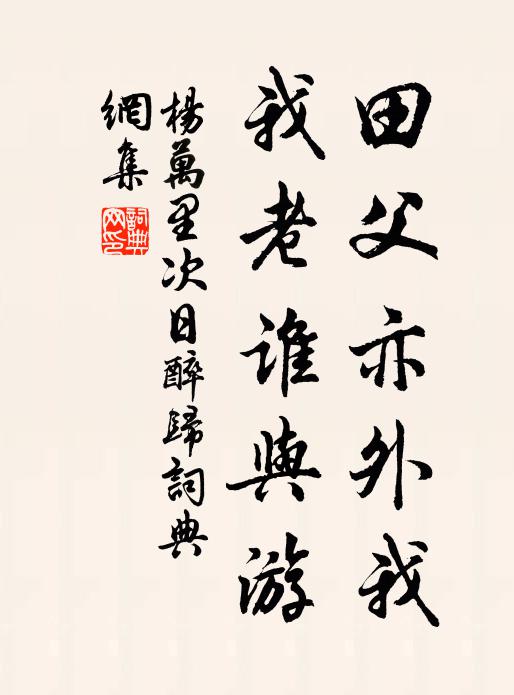 田父亦外我
我老誰與游
楊萬里次日醉歸詞典
網集
詞典
网印